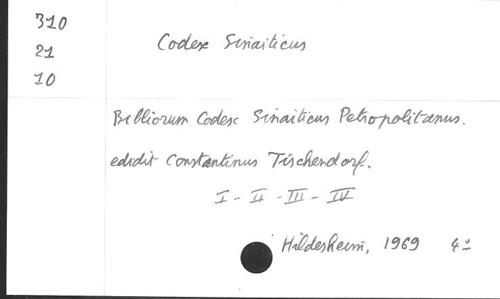 310
21
10
Codex Sinaiticus
Bibliorum Codex Sinaiticus Petropolitanus.
edidit Constantinus Tischendorf.
I - II - III - IV
Hildesheim, 1969 4º